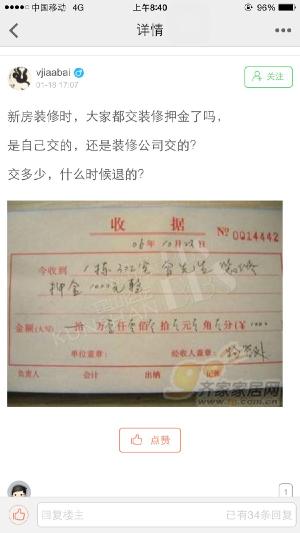 中国移动 4G 上午8:40 96%
详情
vjiaabai
01-18 17:07
关注
新房装修时，大家都交装修押金了吗，
是自己交的，还是装修公司交的？
交多少，什么时候退的？
收 据
06年10月23日 № 0014442
今收到 1栋322室 曾先生 装修
押金 1000元整
金额(大写) 拾 万壹仟零佰零拾零元零角零分(¥ 1000
单位盖章: 经收人盖章:
负责人 会计 出纳 记账
齐家家居网
点赞
1
回复楼主 已有34条回复